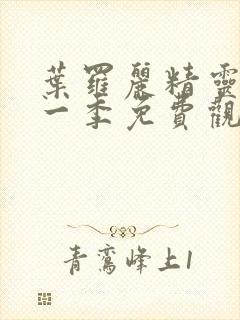 葉羅麗精靈
一季免費觀
青鸞峰上1